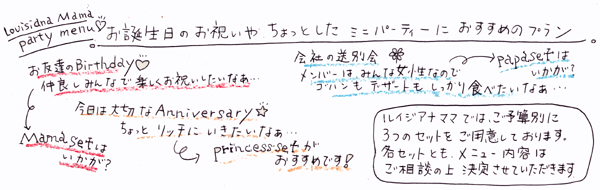 Louisidna Mama
party menu♡
お誕生日のお祝いやちょっとしたミニパーティーにおすすめのプラン
お友達のBirthday♡
仲良しみんなで楽しくお祝いしたいなぁ…
Mama setは
いかが?
今日は大切なAnniversary☆
ちょっとリッチにいきたいなぁ…
princess setが
おすすめです!
会社の送別会
メンバーはみんな女性なので
ゴハンもデザートもしっかり食べたいなぁ…
papa setは
いかが?
ルイジアナママでは、ご予算別に
3つのセットをご用意しております。
各セットとも、メニュー内容は
ご相談の上決定させていただきます